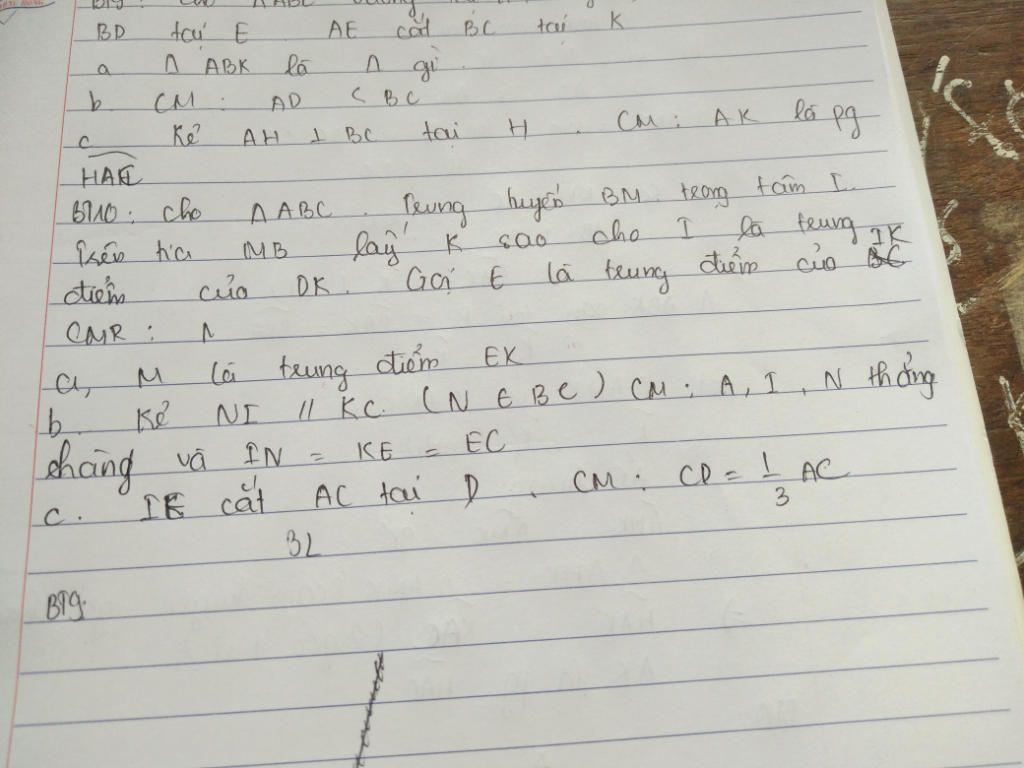 BT9: Cho Δ ABC vuông
BD tại E AE cắt BC tại K
a Δ ABK là Δ gì
b. CM: AD < BC
c Kẻ AH ⊥ BC tại H. CM: AK là pg
HAC
BT10: cho Δ ABC. Trung tuyến BM. trọng tâm I.
Trên tia MB lấy K sao cho I là trung IK
điểm của DK. Gọi E là trung điểm của
CMR:
a, M là trung điểm EK
b. Kẻ NI // KC. (N ∈ BC) CM: A, I, N thẳng
chàng và IN = KE = EC
c. IE cắt AC tại D. CM: CD = 1/3 AC
3L
BT9.